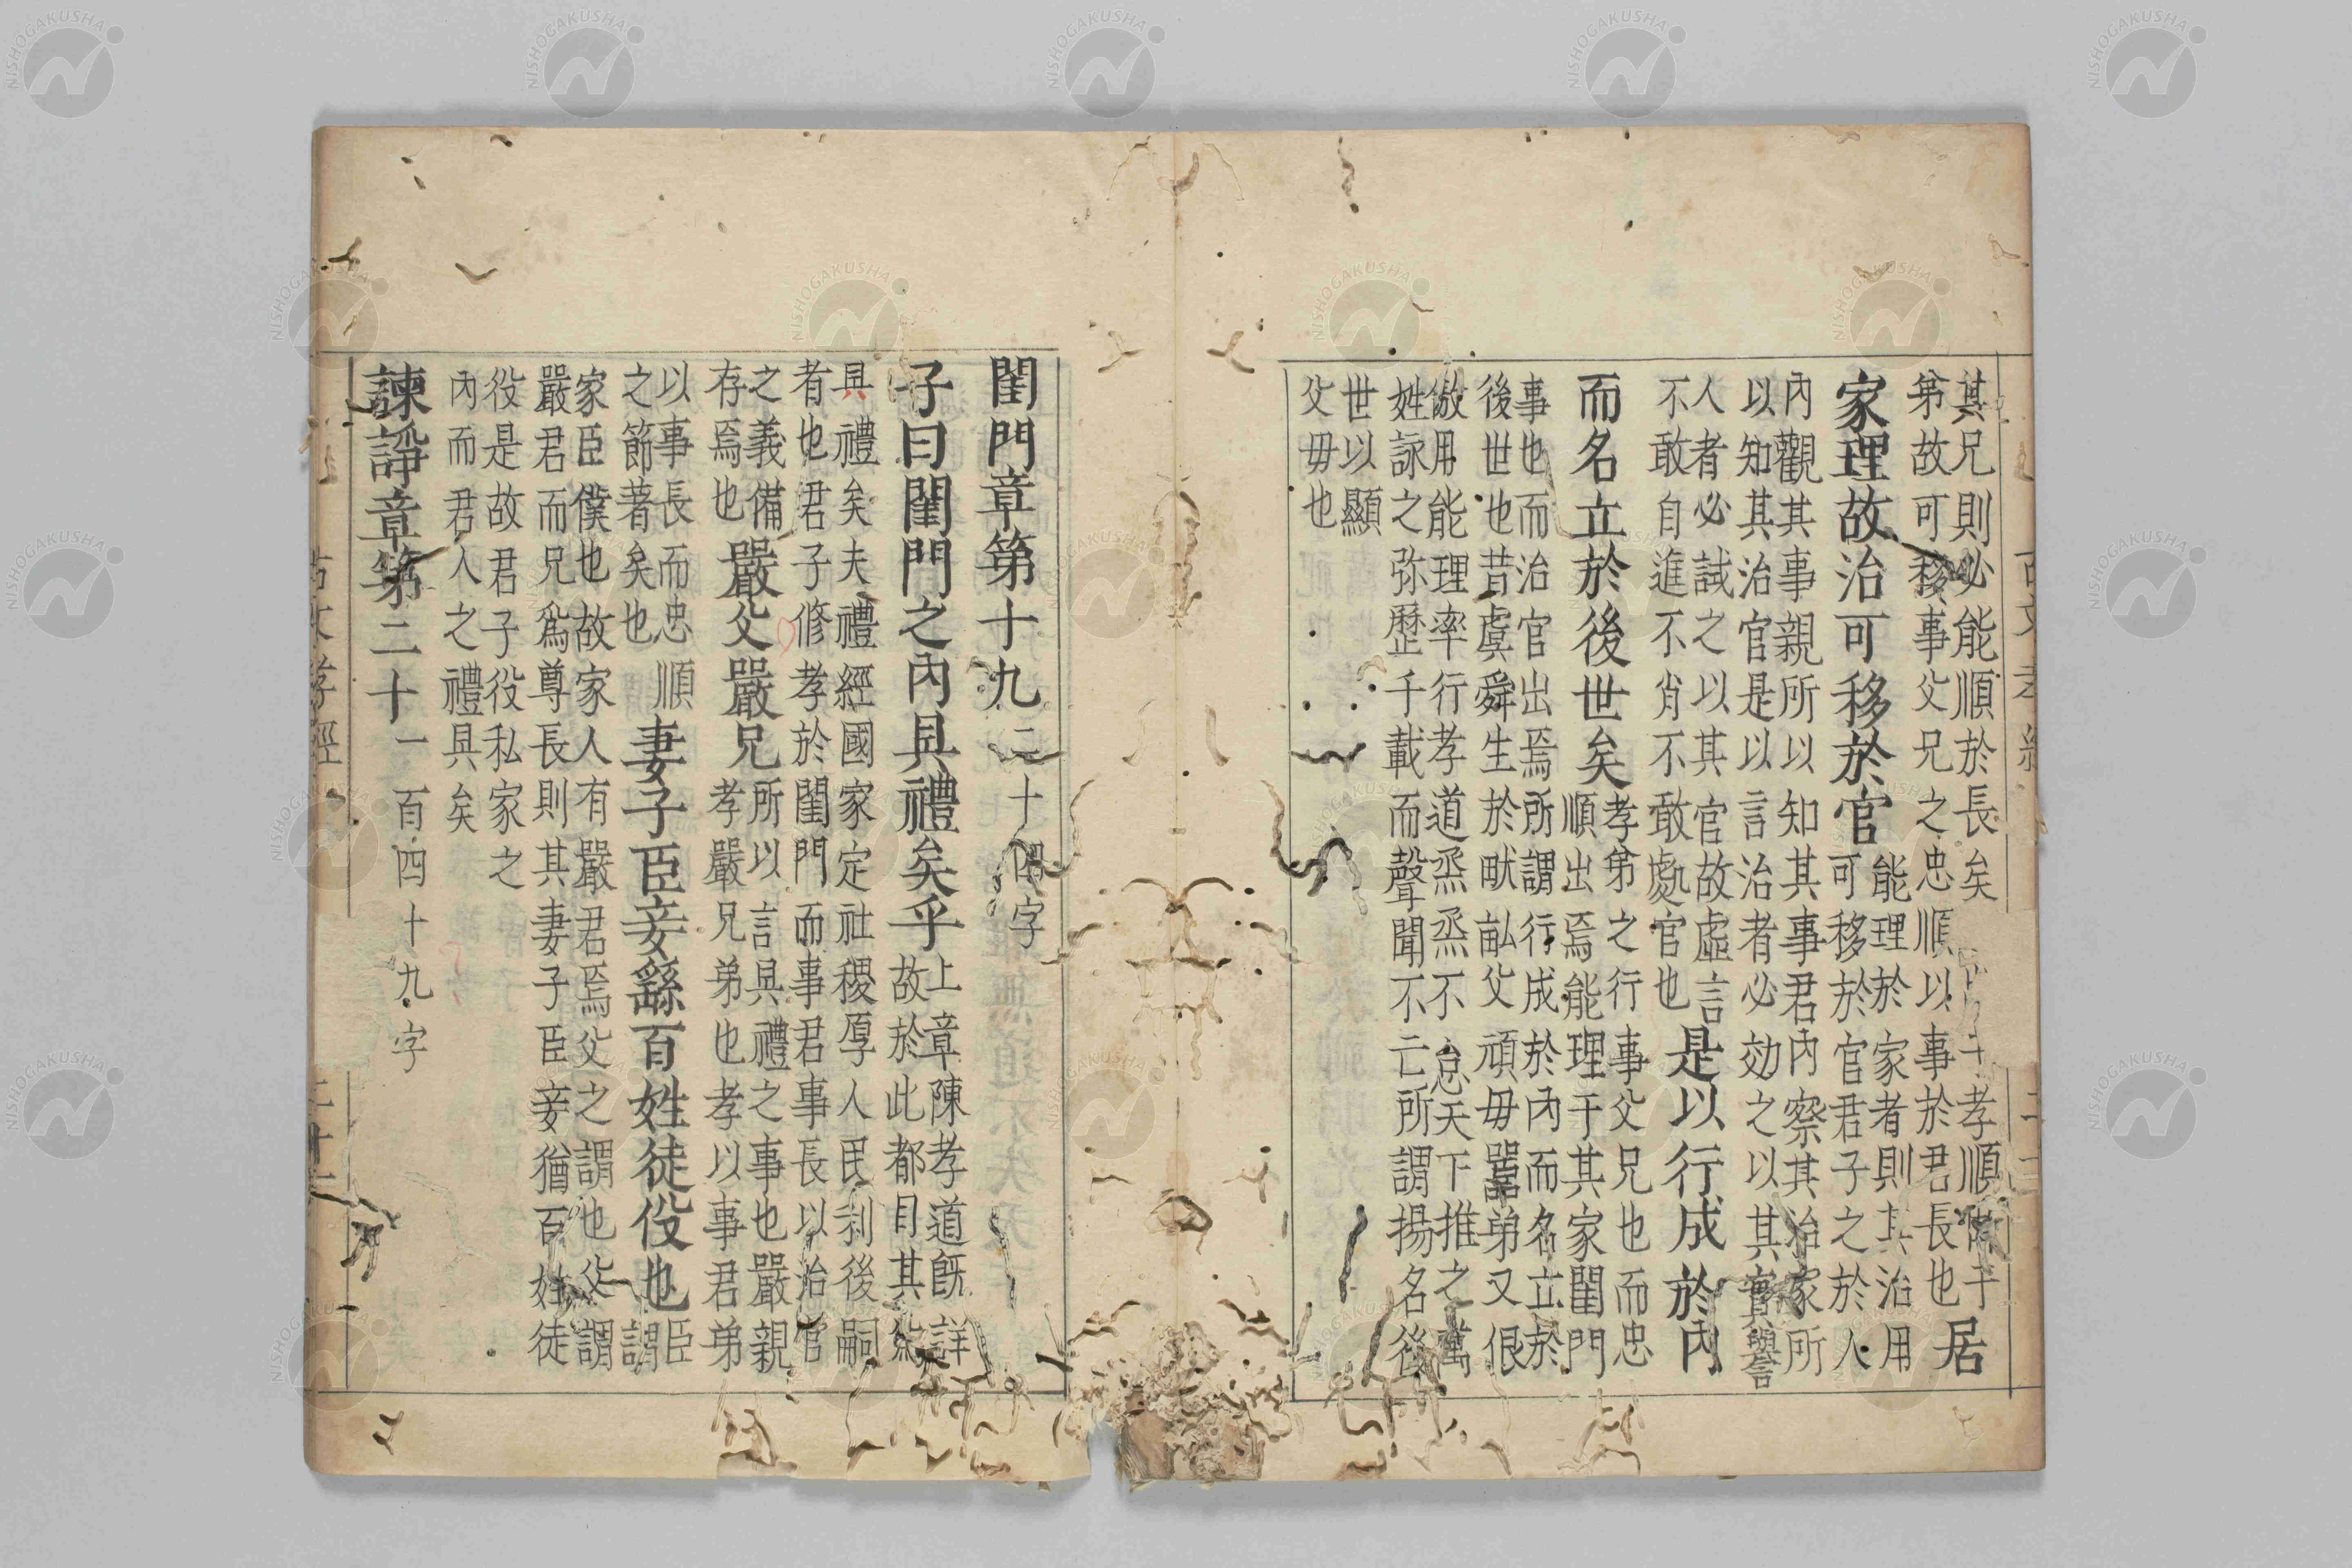 其兄則必能順於長矣孝順備于
弟故可移事父兄之忠順以事於君長也居
家理故治可移於官能理於家者則其治用
可移於官君子之於人
內觀其事親所以知其事君內察其治家所
以知其治官是以言治者必効之以其實譽
人者必試之以其官故虛言
不敢自進不肖不敢處官也是以行成於內
而名立於後世矣孝弟之行事父兄也而忠
順出焉能理于其家閨門
事也而治官出焉所謂行成於內而名立於
後世也昔虞舜生於畎畝父頑毋嚚弟又佷
傲用能理率行孝道烝烝不怠天下推之萬
姓詠之弥歷千載而聲聞不亡所謂揚名後
世以顯
父毋也
閨門章第十九二十四字
子曰閨門之內具禮矣乎上章陳孝道旣詳
故於此都目其
具禮矣夫禮經國家定社稷厚人民利後嗣
者也君子修孝於閨門而事君事長以治官
之義備
存焉也嚴父嚴兄所以言具禮之事也嚴親
孝嚴兄弟也孝以事君弟
以事長而忠順
之節著矣也妻子臣妾繇百姓徒役也臣謂
家臣僕也故家人有嚴君焉父之謂也父謂
嚴君而兄爲尊長則其妻子臣妾猶百姓徒
役是故君子役私家之
內而君人之禮具矣
諫諍章第二十一百四十九字
古文孝經
古文孝經